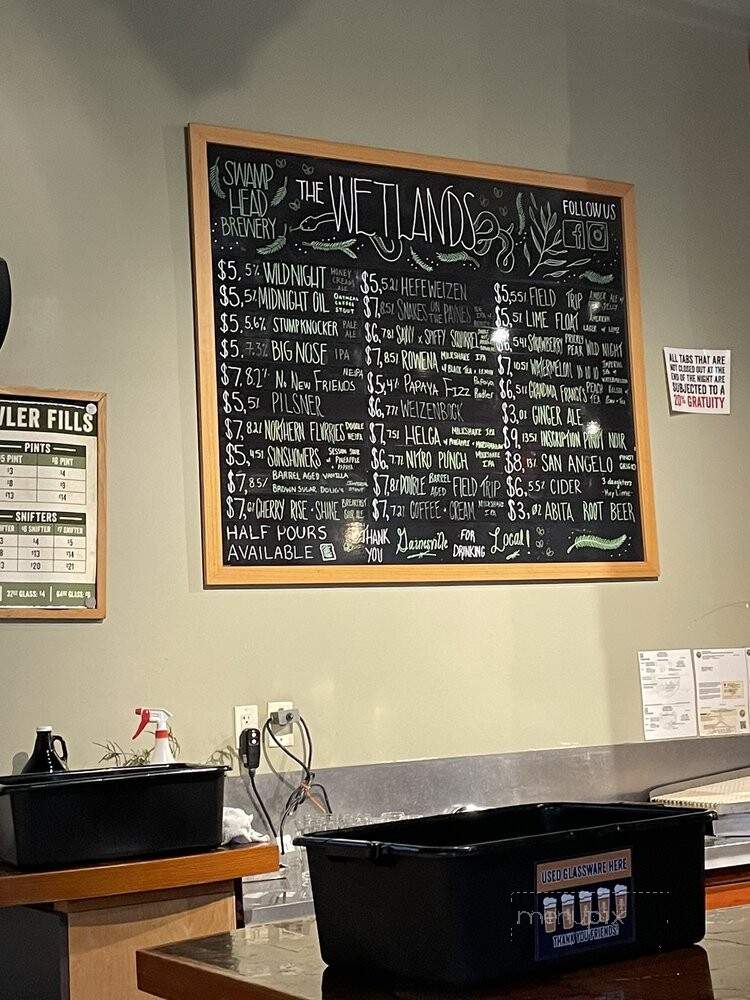 SWAMP
HEAD
BREWERY
THE WETLANDS
FOLLOW US
$5, 5% WILD NIGHT HONEY CREAM ALE
$5, 5% MIDNIGHT OIL OATMEAL COFFEE STOUT
$5, 5.6% STUMPKNOCKER PALE ALE
$5, 7.3% BIG NOSE IPA
$7, 8.2% NO NEW FRIENDS NEIPA
$5, 5% PILSNER
$7, 8.2% NORTHERN FLURRIES DOUBLE NEIPA
$5, 4.5% SUNSHOWERS SESSION SOUR w/ PINEAPPLE PAPAYA
$7, 8.5% BARREL AGED VANILLA
BROWN SUGAR
$7, CHERRY RISE · SHINE BREAKFAST SOUR ALE
HALF POURS
AVAILABLE
$5, 5.2% HEFEWEIZEN
SNAKES ON THE PLAINES
$6, SAVVY x SPIFFY SQUIRREL
$7, 8.5% ROWENA MILKSHAKE IPA w/ BLACK TEA + LEMON
$5, 4% PAPAYA FIZZ PAPAYA RADLER
$6, 7% WEIZENBOCK
$7, 7.5% HELGA MILKSHAKE IPA w/ PINEAPPLE + MARSHMALLOW
$6, 7.7% NITRO PUNCH MILKSHAKE IPA
$7, 8% DOUBLE BARREL AGED FIELD TRIP
$7, 7.2% COFFEE · CREAM MILKSHAKE IPA
THANK YOU Gainesville FOR DRINKING Local!
$5, 5.5% FIELD TRIP AMBER ALE w/ JELLY
$5, 5% LIME FLOAT AMERICAN LAGER w/ LIME
$6, 5.4% STRAWBERRY PRICKLY PEAR WILD NIGHT
$7, 10.5% WATERMELON 10 10 10 IMPERIAL
$6, 5% GRANDMA FRANCY'S PEACH TEA
$3, 0% GINGER ALE
$9, 13.5% INSCRIPTION PINOT NOIR
$8, 15% SAN ANGELO PINOT GRIGIO
$6, 5.5% CIDER 3 daughters Key Lime
$3, 0% ABITA ROOT BEER
ALL TABS THAT ARE
NOT CLOSED OUT AT THE
END OF THE NIGHT ARE
SUBJECTED TO A
20% GRATUITY
WLER FILLS
PINTS
$5 PINT $6 PINT
$3 $4
$8 $9
$13 $14
SNIFTERS
SNIFTER $6 SNIFTER $7 SNIFTER
$4 $5
$13 $14
$20 $21
32oz GLASS: $4 64oz GLASS: $5
USED GLASSWARE HERE
THANK YOU FRIENDS!
menupix